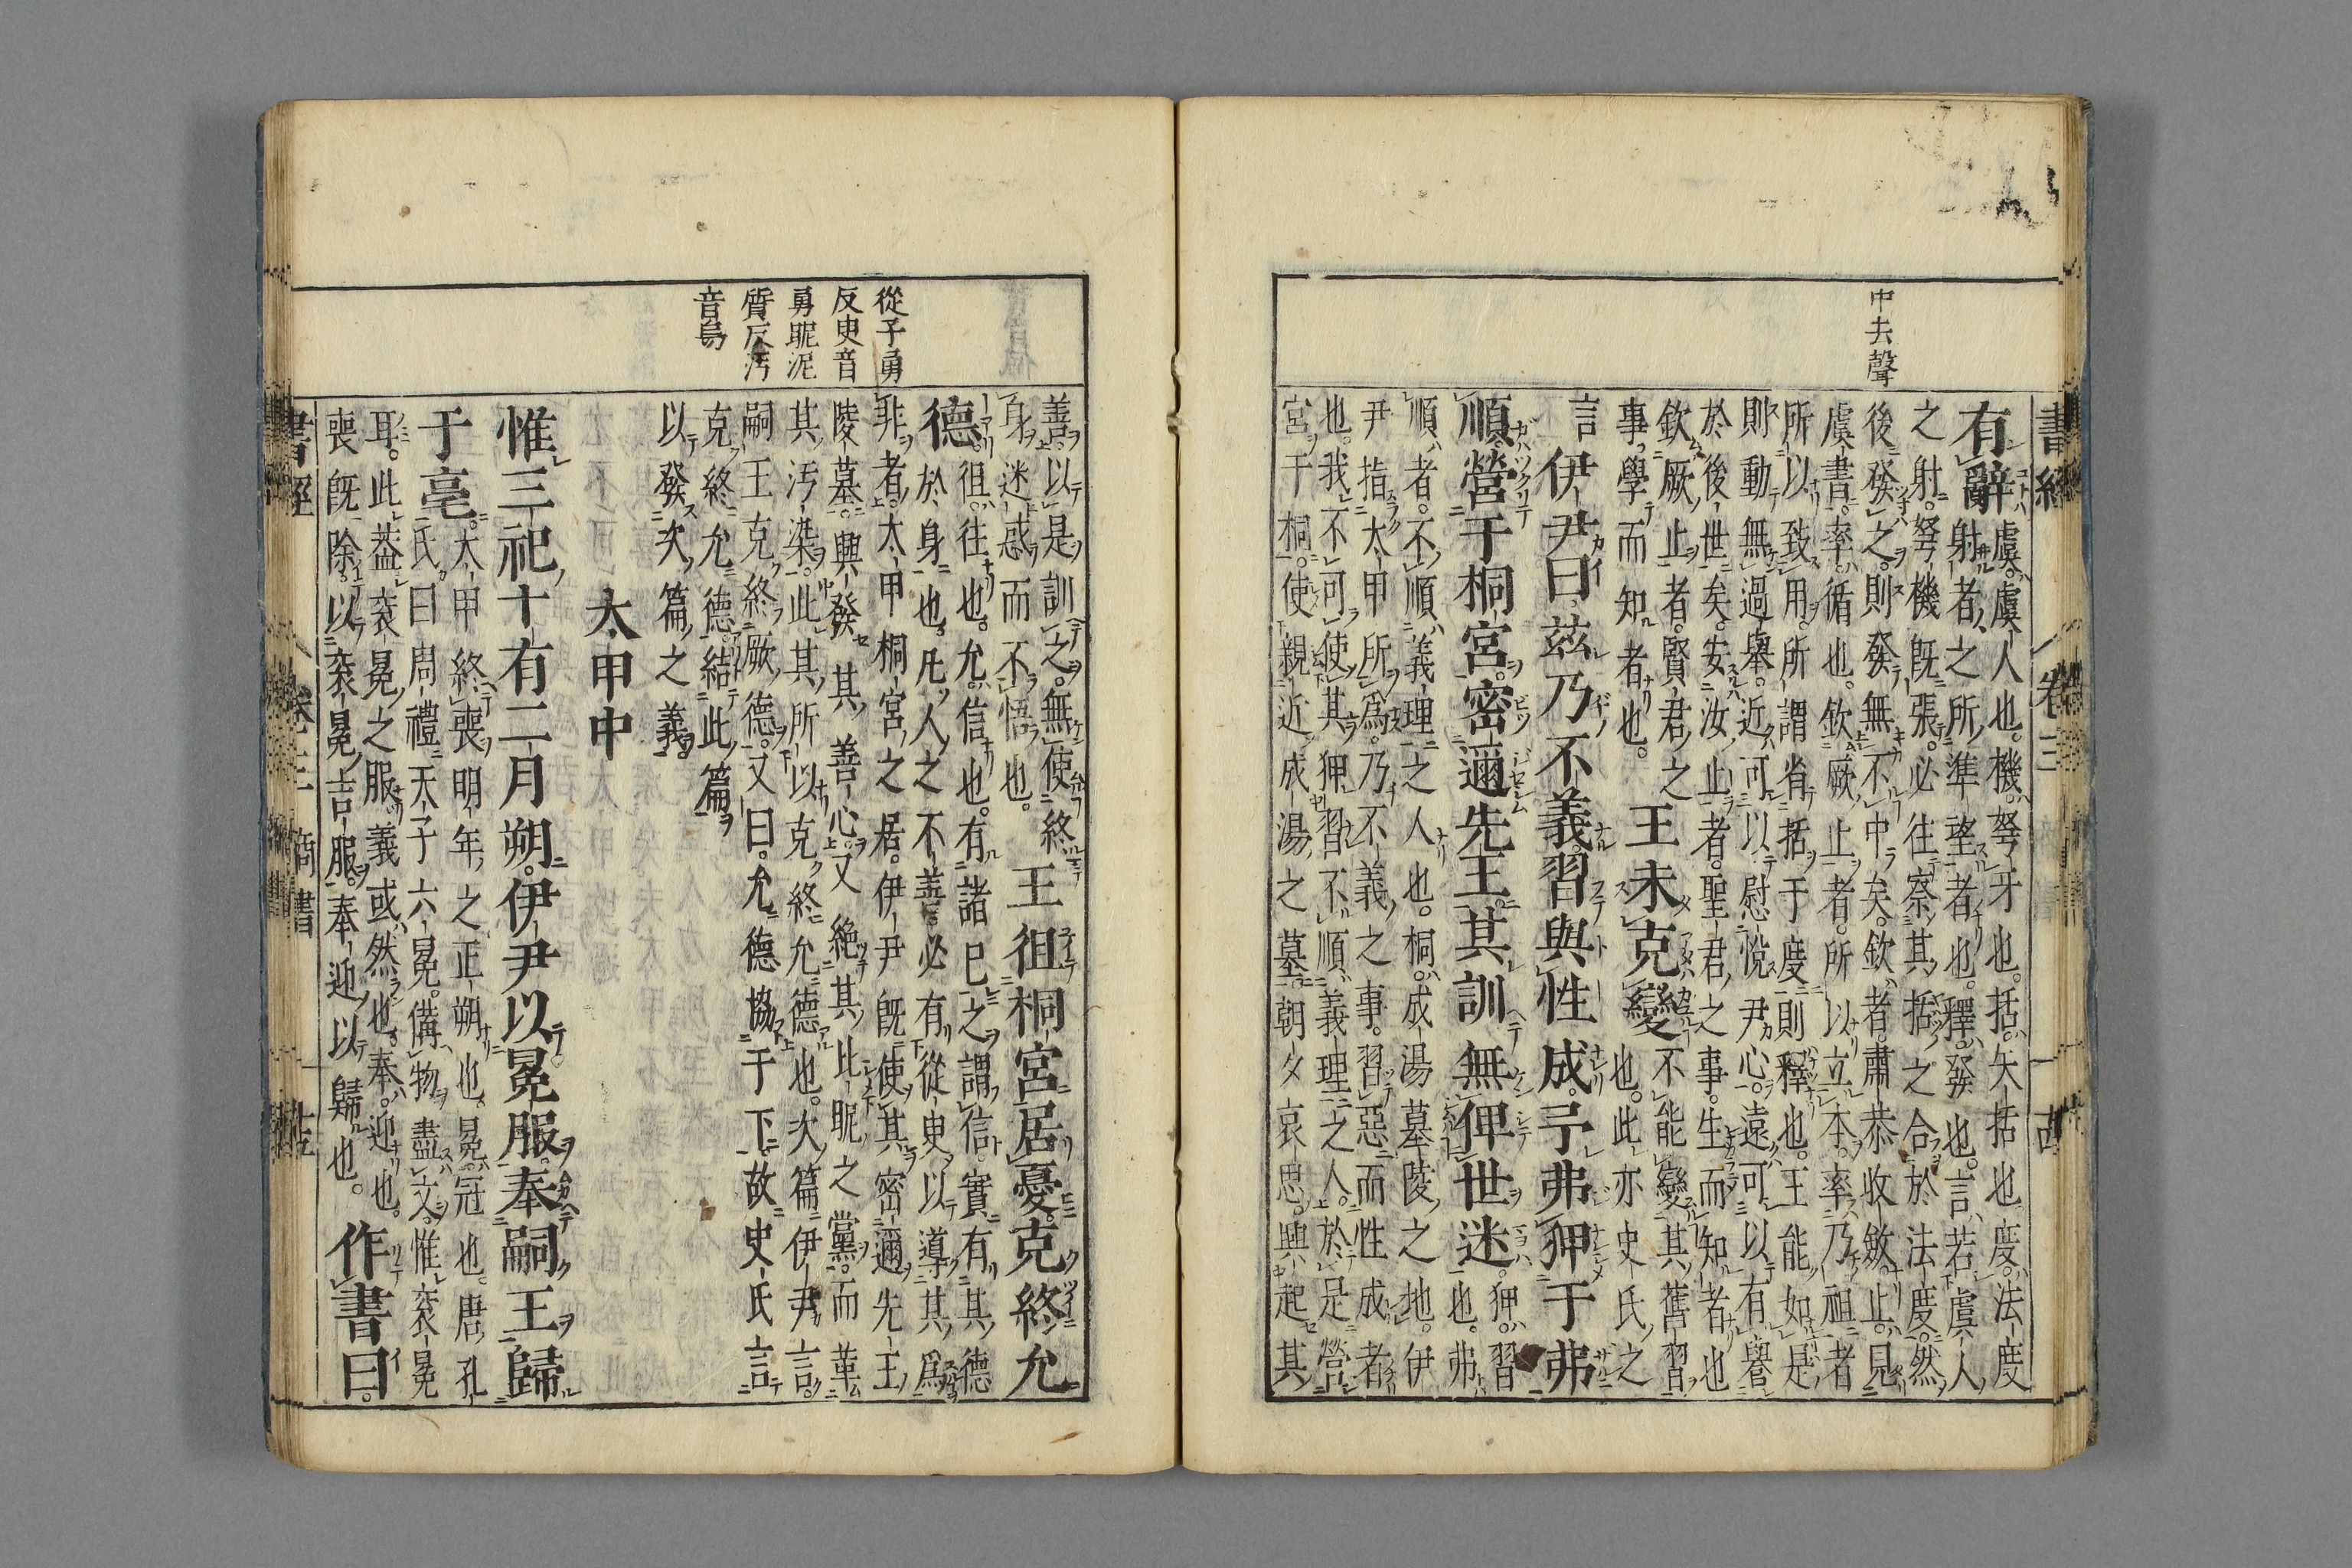 中去聲
書經 卷三 十四
有辭虞。虞人也。機。弩牙也。括。矢括也。度。法度
射者之所準望者也。釋。發也。言若虞人
之射。弩機旣張。必往察其括之合於法度。然
後發之。則發無不中矣。欽者。肅恭收斂。止。見
虞書。率。循也。欽厥止者。所以立本。率乃祖者
所以致用。所謂省括于度則釋也。王能如是。
則動無過舉。近可以慰悅尹心。遠可以有譽
於後世矣。安汝止者。聖君之事。生而知者也
欽厥止者。賢君之
事。學而知者也。王未克變不能變其舊習
也。此亦史氏之
言伊尹曰。茲乃不義。習與性成。予弗狎于弗
順。營于桐宮。密邇先王。其訓無俾世迷。狎。習
也。弗
順者。不順義理之人也。桐。成湯墓陵之地。伊
尹指太甲所爲。乃不義之事。習惡而性成者
也。我不可使其狎習不順義理之人。於是營
宮于桐。使親近成湯之墓。朝夕哀思。興起其
從予勇
反臾音
勇昵泥
質反汚
音烏
善。以是訓之。無使終
身迷惑而不悟也。王徂桐宮居憂。克終允
德。徂。往也。允。信也。有諸己之謂信。實有其德
於身也。凡人之不善。必有從臾以導其爲
非者。太甲桐宮之居。伊尹旣使其密邇先王
陵墓。興發其善心。又絶其比昵之黨。而革
其汚染。此其所以克終允德也。次篇伊尹言。
嗣王克終厥德。又曰。允德協于下。故史氏言
克終允德。結此篇。
以發次篇之義。
太甲中
惟三祀十有二月朔。伊尹以冕服。奉嗣王歸
于亳。太甲終喪明年之正朔也。冕。冠也。唐孔
氏曰。周禮天子六冕。備物盡文。惟袞冕
耳。此蓋袞冕之服。義或然也。奉。迎也。
喪旣除。以袞冕吉服。奉迎以歸也。作書曰。
書經 卷三 商書